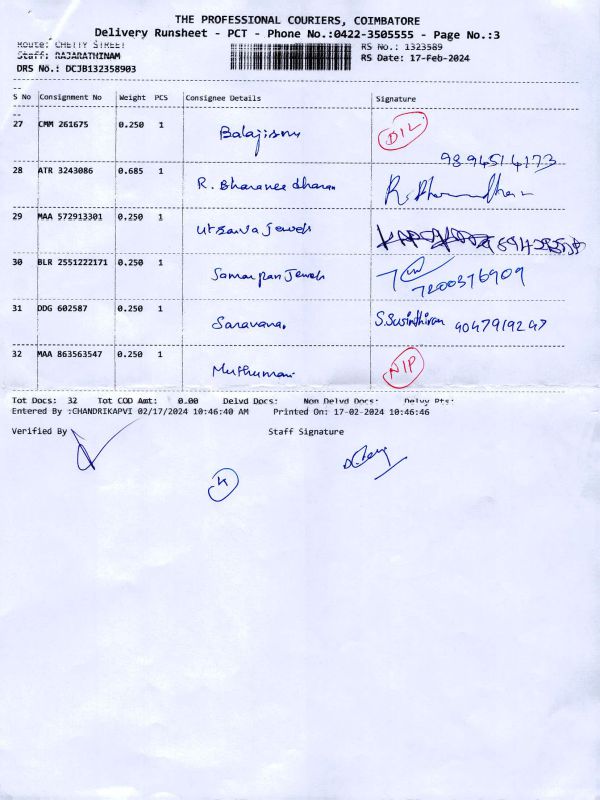 THE PROFESSIONAL COURIERS, COIMBATORE
Delivery Runsheet - PCT - Phone No.:0422-3505555 - Page No.:3
Route: CHETTY STREET
RS No.: 1323589
Staff: RAJARATHINAM
RS Date: 17-Feb-2024
DRS No.: DCJB132358903
S No Consignment No Weight PCS Consignee Details Signature
27 CMM 261675 0.250 1 Balajisnu D/L
9894514173
28 ATR 3243086 0.685 1 R. Bharanee dharan
29 MAA 572913301 0.250 1 utsava jewels
30 BLR 2551222171 0.250 1 Samarpan Jewels 7200376909
31 DDG 602587 0.250 1 Saravana. S.Susinthiran 9047919247
32 MAA 863563547 0.250 1 Muthumani NIP
Tot Docs: 32 Tot COD Amt: 0.00 Delvd Docs: Non Delvd Docs: Delvy Pts:
Entered By :CHANDRIKAPVI 02/17/2024 10:46:40 AM Printed On: 17-02-2024 10:46:46
Verified By Staff Signature
K